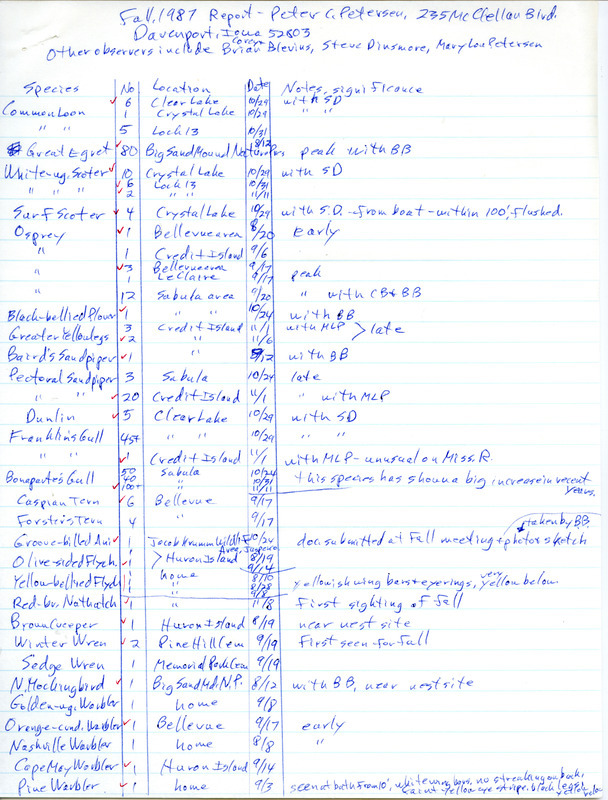 Fall, 1987 Report - Peter C. Petersen, 235 McClellan Blvd.
Davenport, Iowa 52803
Other observers include Brian Blevins, Steve Dinsmore, Mary Lou Petersen
Carey
Species No Location Date Notes, significance
Common Loon 6 Clear Lake 10/29 with SD
1 Crystal Lake 10/29 " "
" " 5 Lock 13 10/31
Great Egret 80 Big Sand Mound Nature Prs 8/12 peak with BB
White-wg. Scoter 10 Crystal Lake 10/29 with SD
" " 6 Lock 13 10/31
" " 2 " " 11/11
Surf Scoter 4 Crystal Lake 10/29 with S.D. - from boat - within 100', flushed.
Osprey 1 Bellevue area 8/20 early
" 1 Credit Island 9/6
" 3 Bellevue area 9/17 peak
1 LeClaire 9/17
12 Sabula area 9/20 " with CB & BB
Black-bellied Plover 1 " " 10/24 with BB
Greater Yellowlegs 3 Credit Island 11/1 with MLP > late
2 " 11/6
Baird's Sandpiper 1 " /12 with BB
Pectoral Sandpiper 3 Sabula 10/24 late
" " 20 Credit Island 11/1 " with MLP
Dunlin 5 Clear Lake 10/29 with SD
Franklin's Gull 45+ " " 10/29 " "
1 Credit Island 11/1 with MLP - unusual on Miss. R.
Bonaparte's Gull 50 Sabula 10/24
40 " 10/31 this species has shown a big increase in recent
100+ " 11/11 years.
Caspian Tern 6 Bellevue 9/17
Forster's Tern 4 " 9/17
taken by BB
Groove-billed Ani 1 Jacob Krumm Wildlife 10/24 doc. submitted at Fall meeting + photo + sketch
Area, Jasper co
Olive-sided Flych. 1 > Huron Island 8/19
1 9/14
Yellow-bellied Flych 1 home 8/10 yellowish wing bars + eyerings, very yellow below.
1 " 8/28
1 " 9/8
Red-br. Nuthatch 1 " 11/8 First sighting of fall
Brown Creeper 1 Huron Island 8/19 near nest site
Winter Wren 2 Pine Hill Cem 9/19 First seen for fall
Sedge Wren 1 Memorial Park Cem 9/19
N. Mockingbird 1 Big Sand Md. N.P. 8/12 with BB, near nest site
Golden-wg. Warbler 1 home 9/8
Orange-cwnd. Warbler 1 Bellevue 9/17 early
Nashville Warbler 1 home 8/8 "
Cape May Warbler 1 Huron Island 9/14
Pine Warbler 1 home 9/3 seen at bath from 10', white wing bars, no streaking on back,
faint yellow eye stripe, black legs, yellow below